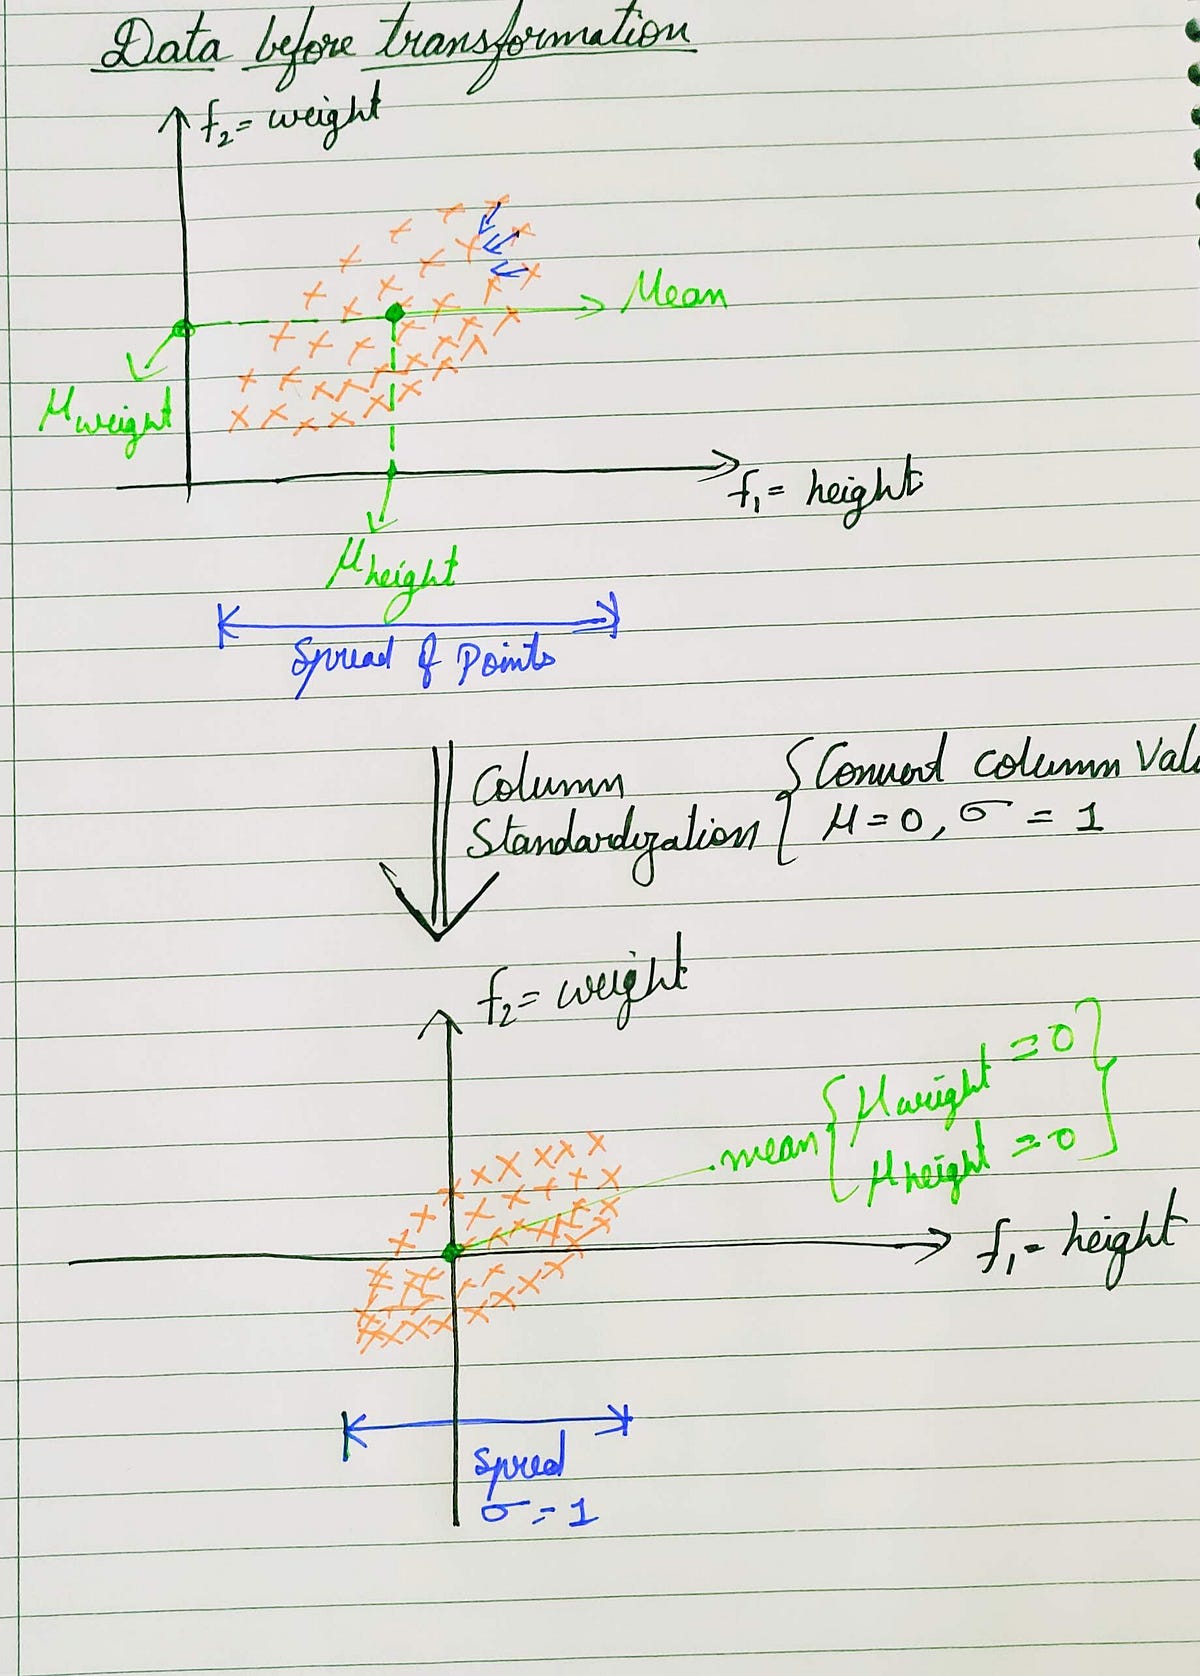 Data before transformation
f₂ = weight
Mean
μ weight
f₁ = height
μ height
Spread of Points
Column
Standardization
{ Convert column Val
μ = 0, σ = 1
f₂ = weight
mean { μ weight = 0 }
μ height = 0
f₁ = height
Spred
σ = 1